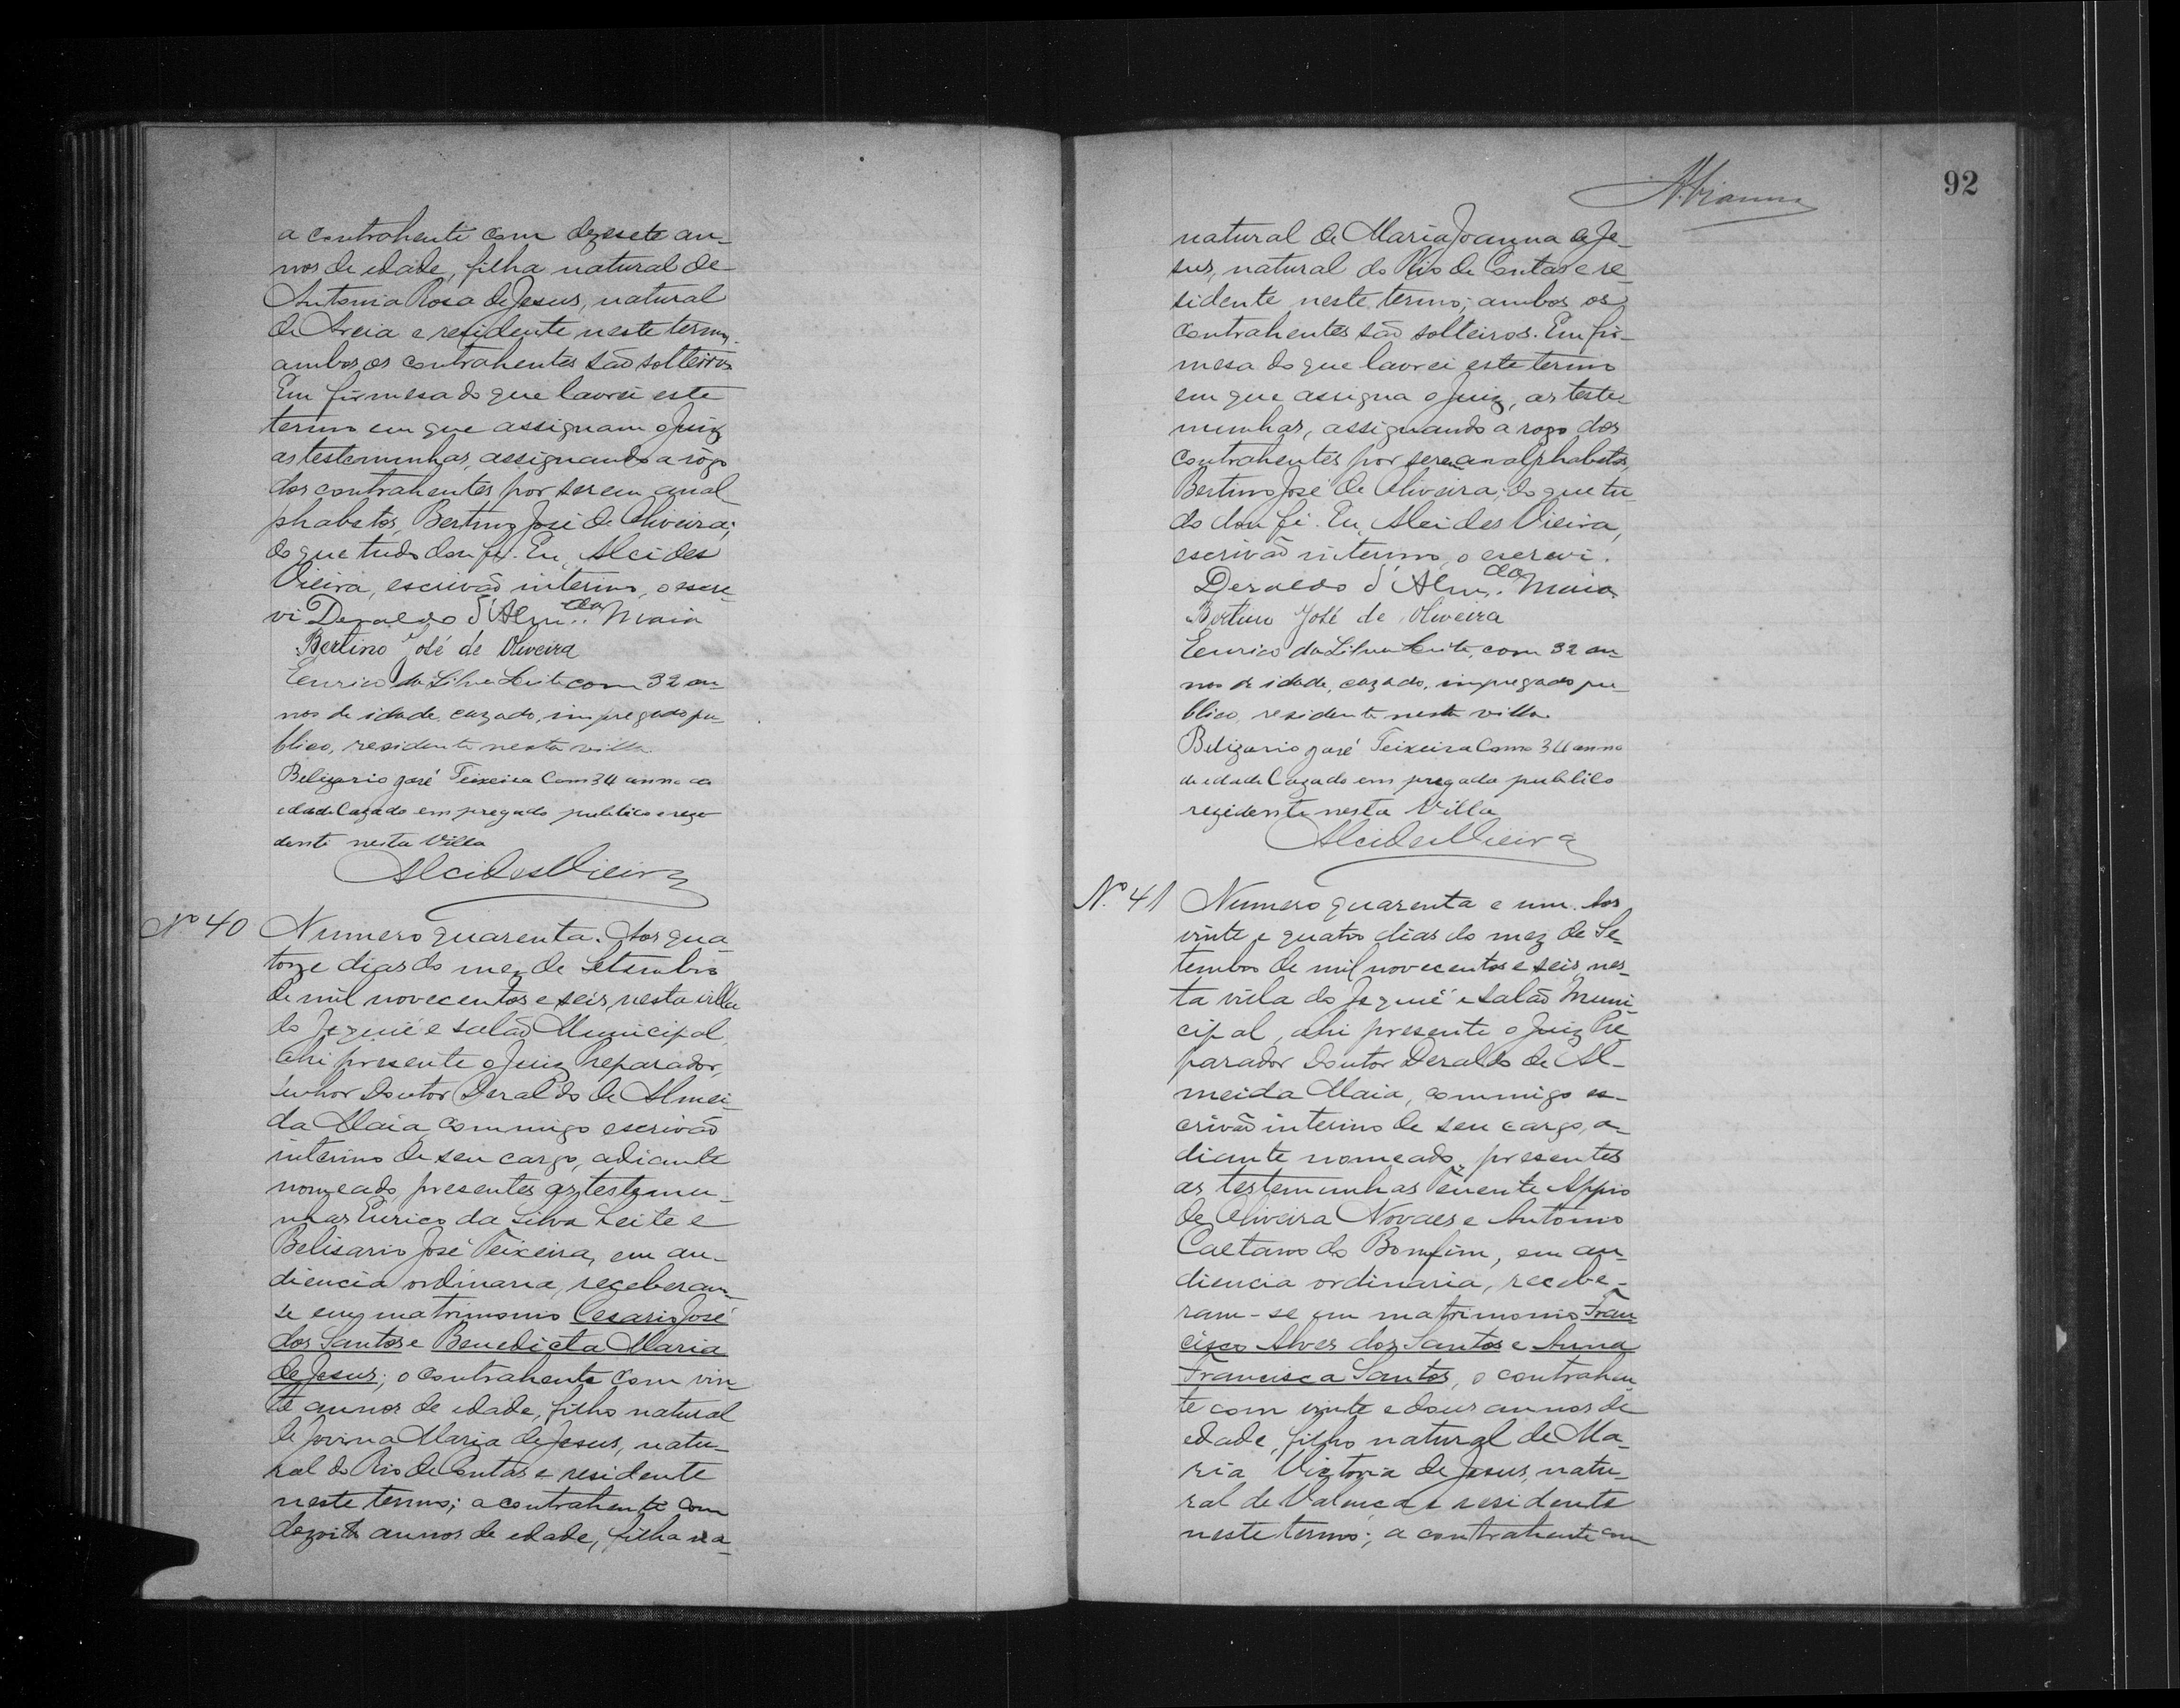 a contrahente com dezesete an-
nos de edade, filha natural de
Antonia Rosa de Jesus, natural
de Areia e residente neste termo,
ambos os contrahentes são solteiros
Em firmesa do que lavrei este
termo em que assignam o Juiz
as testemunhas, assignando a rôgo
dos contrahentes por serem anal
phabetos, Bertino José de Oliveira;
do que tudo dou fé. Eu, Alcides
Vieira, escrivão interino, o escre-
vi Deraldo d'Alm.da Maia
Bertino José de Oliveira
Eurico da Silva Leite com 32 an-
nos de idade, cazado, impregado pu-
blico, residente nesta villa
Belizario José Teixeira Com 34 anno de
edade Cazado em pregado publico e rezi
dente nesta Villa
Alcides Vieira
Nº 40 Numero quarenta. Aos qua
torze dias do mez de Setembro
de mil novecentos e seis, nesta villa
do Jequié e salão Municipal,
ahi presente o Juiz Preparador,
Senhor Doutor Deraldo de Almei-
da Maia, commigo escrivão
interino de seu cargo, adiante
nomeado, presentes as testemu-
nhas Eurico da Silva Leite e
Belisario José Teixeira, em au-
diencia ordinaria, receberam-
se em matrimonio Cesario José
dos Santos e Benedicta Maria
de Jesus; o contrahente com vin-
te annos de edade, filho natural
de Jovina Maria de Jesus, natu-
ral do Rio de Contas e residente
neste termo; a contrahente com
dezoito annos de edade, filha na-
92
natural de Maria Joanna de Je-
sus, natural do Rio de Contas e re-
sidente neste termo; ambos os
contrahentes são solteiros. Em fir-
mesa do que lavrei este termo
em que assigna o Juiz, as teste-
munhas, assignando a rogo dos
contrahentes por serem analphabetos,
Bertino José de Oliveira; do que tu-
do dou fé. Eu, Alcides Vieira,
escrivão interino, o escrevi.
Deraldo d'Alm.da Maia
Bertino José de Oliveira
Eurico da Silva Leite, com 32 an-
nos de idade, cazado, impregado pu-
blico, residente nesta villa.
Belizario José Teixeira Com 34 anno
de edade Cazado em pregado publico
rezidente nesta Villa
Alcides Vieira
Nº 41 Numero quarenta e um. Aos
vinte e quatro dias do mez de Se-
tembro de mil novecentos e seis, nes-
ta villa do Jequié e salão Muni-
cipal, ahi presente o Juiz Pre
parador Doutor Deraldo de Al-
meida Maia, commigo es-
crivão interino de seu cargo, a-
diante nomeado, presentes
as testemunhas Tenente Appio
de Oliveira Novaes e Antonio
Caetano do Bomfim, em au-
diencia ordinaria, recebe-
ram-se em matrimonio Fran-
cisco Alves dos Santos e Anna
Francisca Santos, o contrahen-
te com vinte e dous annos de
edade, filho natural de Ma-
ria Victoria de Jesus, natu-
ral de Valença e residente
neste termo; a contrahente com